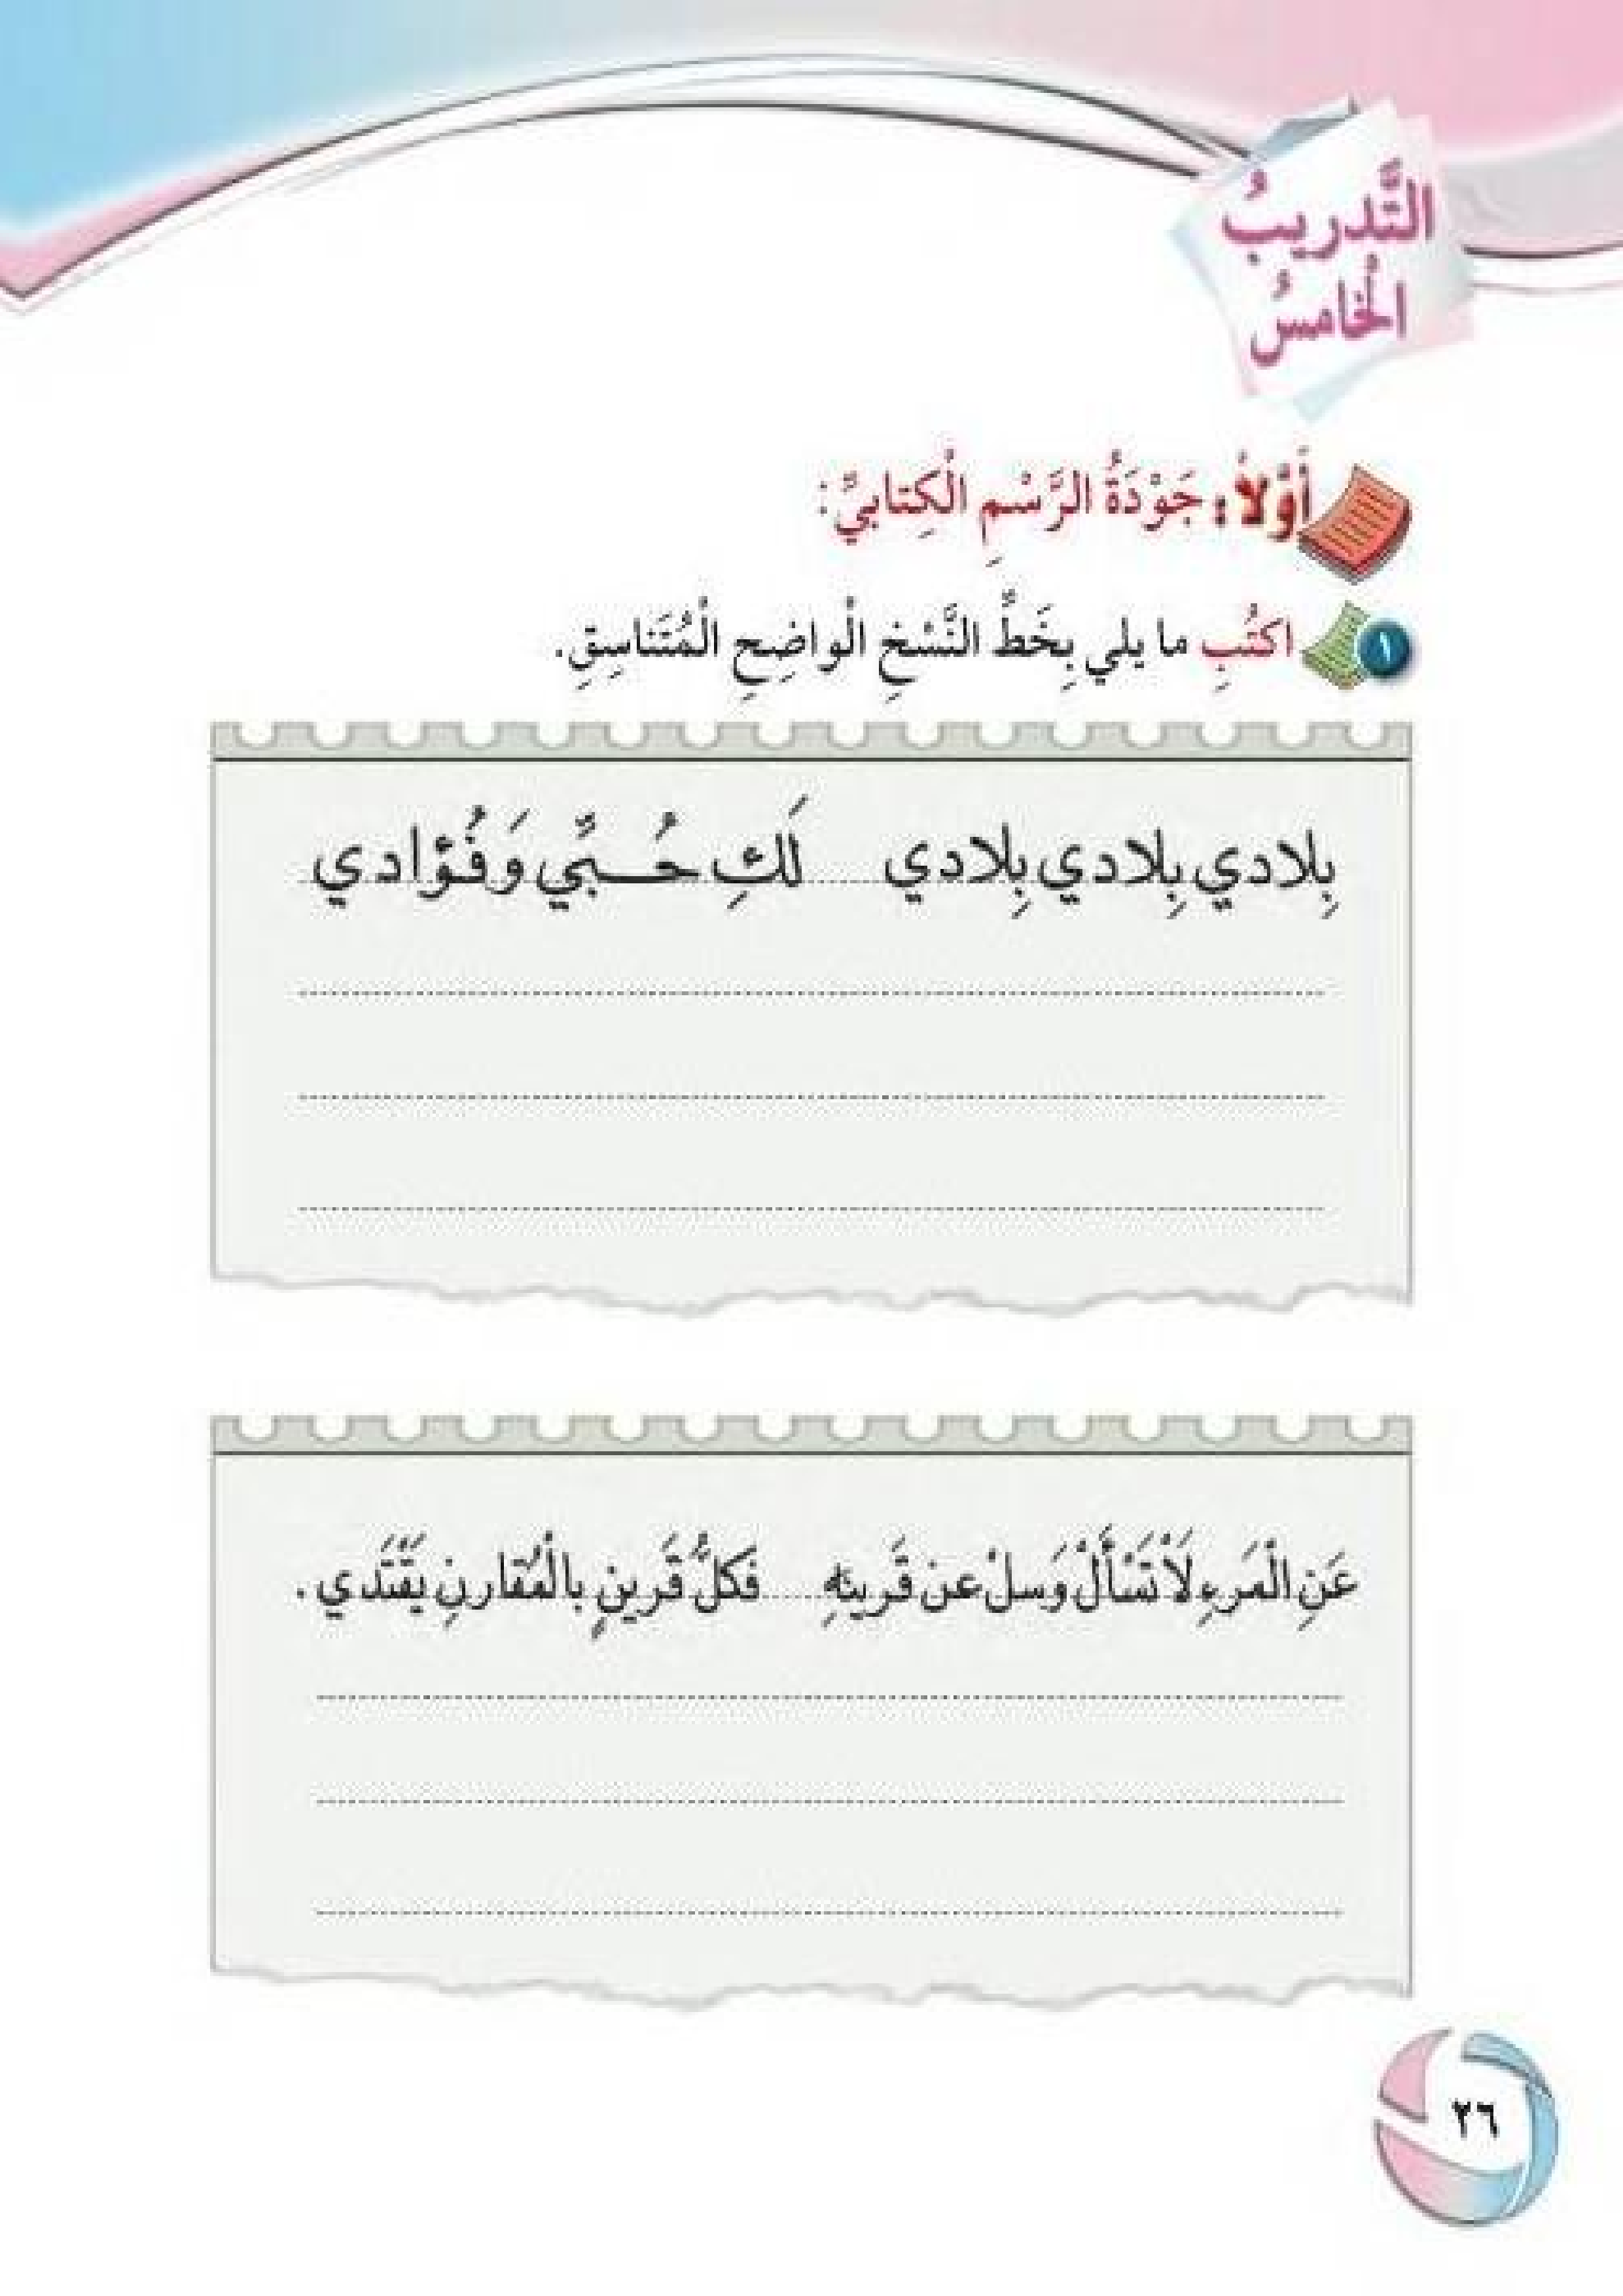 التَّدريبُ
الْخامسُ
أَوَّلاً: جَوْدَةُ الرَّسْمِ الْكِتابيِّ:
١ اكتُبِ ما يلي بِخَطِّ النَّسْخِ الْواضِحِ الْمُتَناسِقِ.
بِلادي بِلادي بِلادي لَكِ حُـبِّي وَفُؤادي
عَنِ الْمَرءِ لَاْ تَسْأَلْ وَسلْ عن قَرينِهِ فكلُّ قَرينٍ بالْمُقارنِ يَقْتَدي .
٢٦